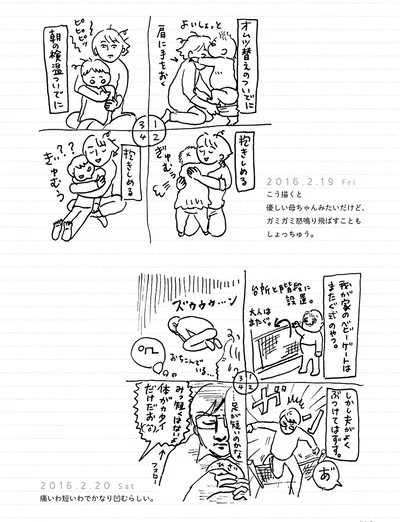 オムツ替えのついでに
よいしょっと
肩に手をおく
抱きしめる
ぎゅむぅ
朝の検温ついでに
ピピピッ
抱きしめる
ぎぃ???
ぎゅむぅ
1
2
3
4
2016.2.19 Fri
こう描くと
優しい母ちゃんみたいだけど、
ガミガミ怒鳴り飛ばすことも
しょっちゅう。
我が家のベビーゲートは
またぐ式のやつ。
台所と階段に
設置。
大人は
またぐ。
しかし夫がよく
ぶつけてはずす。
ガッ
あ゛
ズウウウ…ン
おちこんでいる…
…足が短いのかな…
みっ短くはないよ!
体がカタイ
だけだお(勺)
←フォロー
ひざ
1
2
3
4
2016.2.20 Sat
痛いわ短いわでかなり凹むらしい。